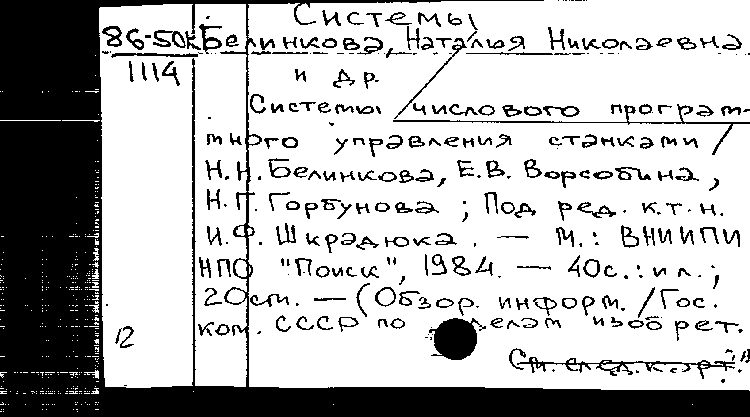 Системы
86-50К Белинкова, Наталья Николаевна
1114 и др.
Системы числового програм-
много управления станками /
Н.Н. Белинкова, Е.В. Ворсобина,
Н.П. Горбунова ; Под ред. к.т.н.
И.Ф. Шкрадюка. — М.: ВНИИПИ
НПО "Поиск", 1984. — 40с.: ил.;
20см. — (Обзор. информ. / Гос.
ком. СССР по делам изобрет.
12
См. след. к-рт.